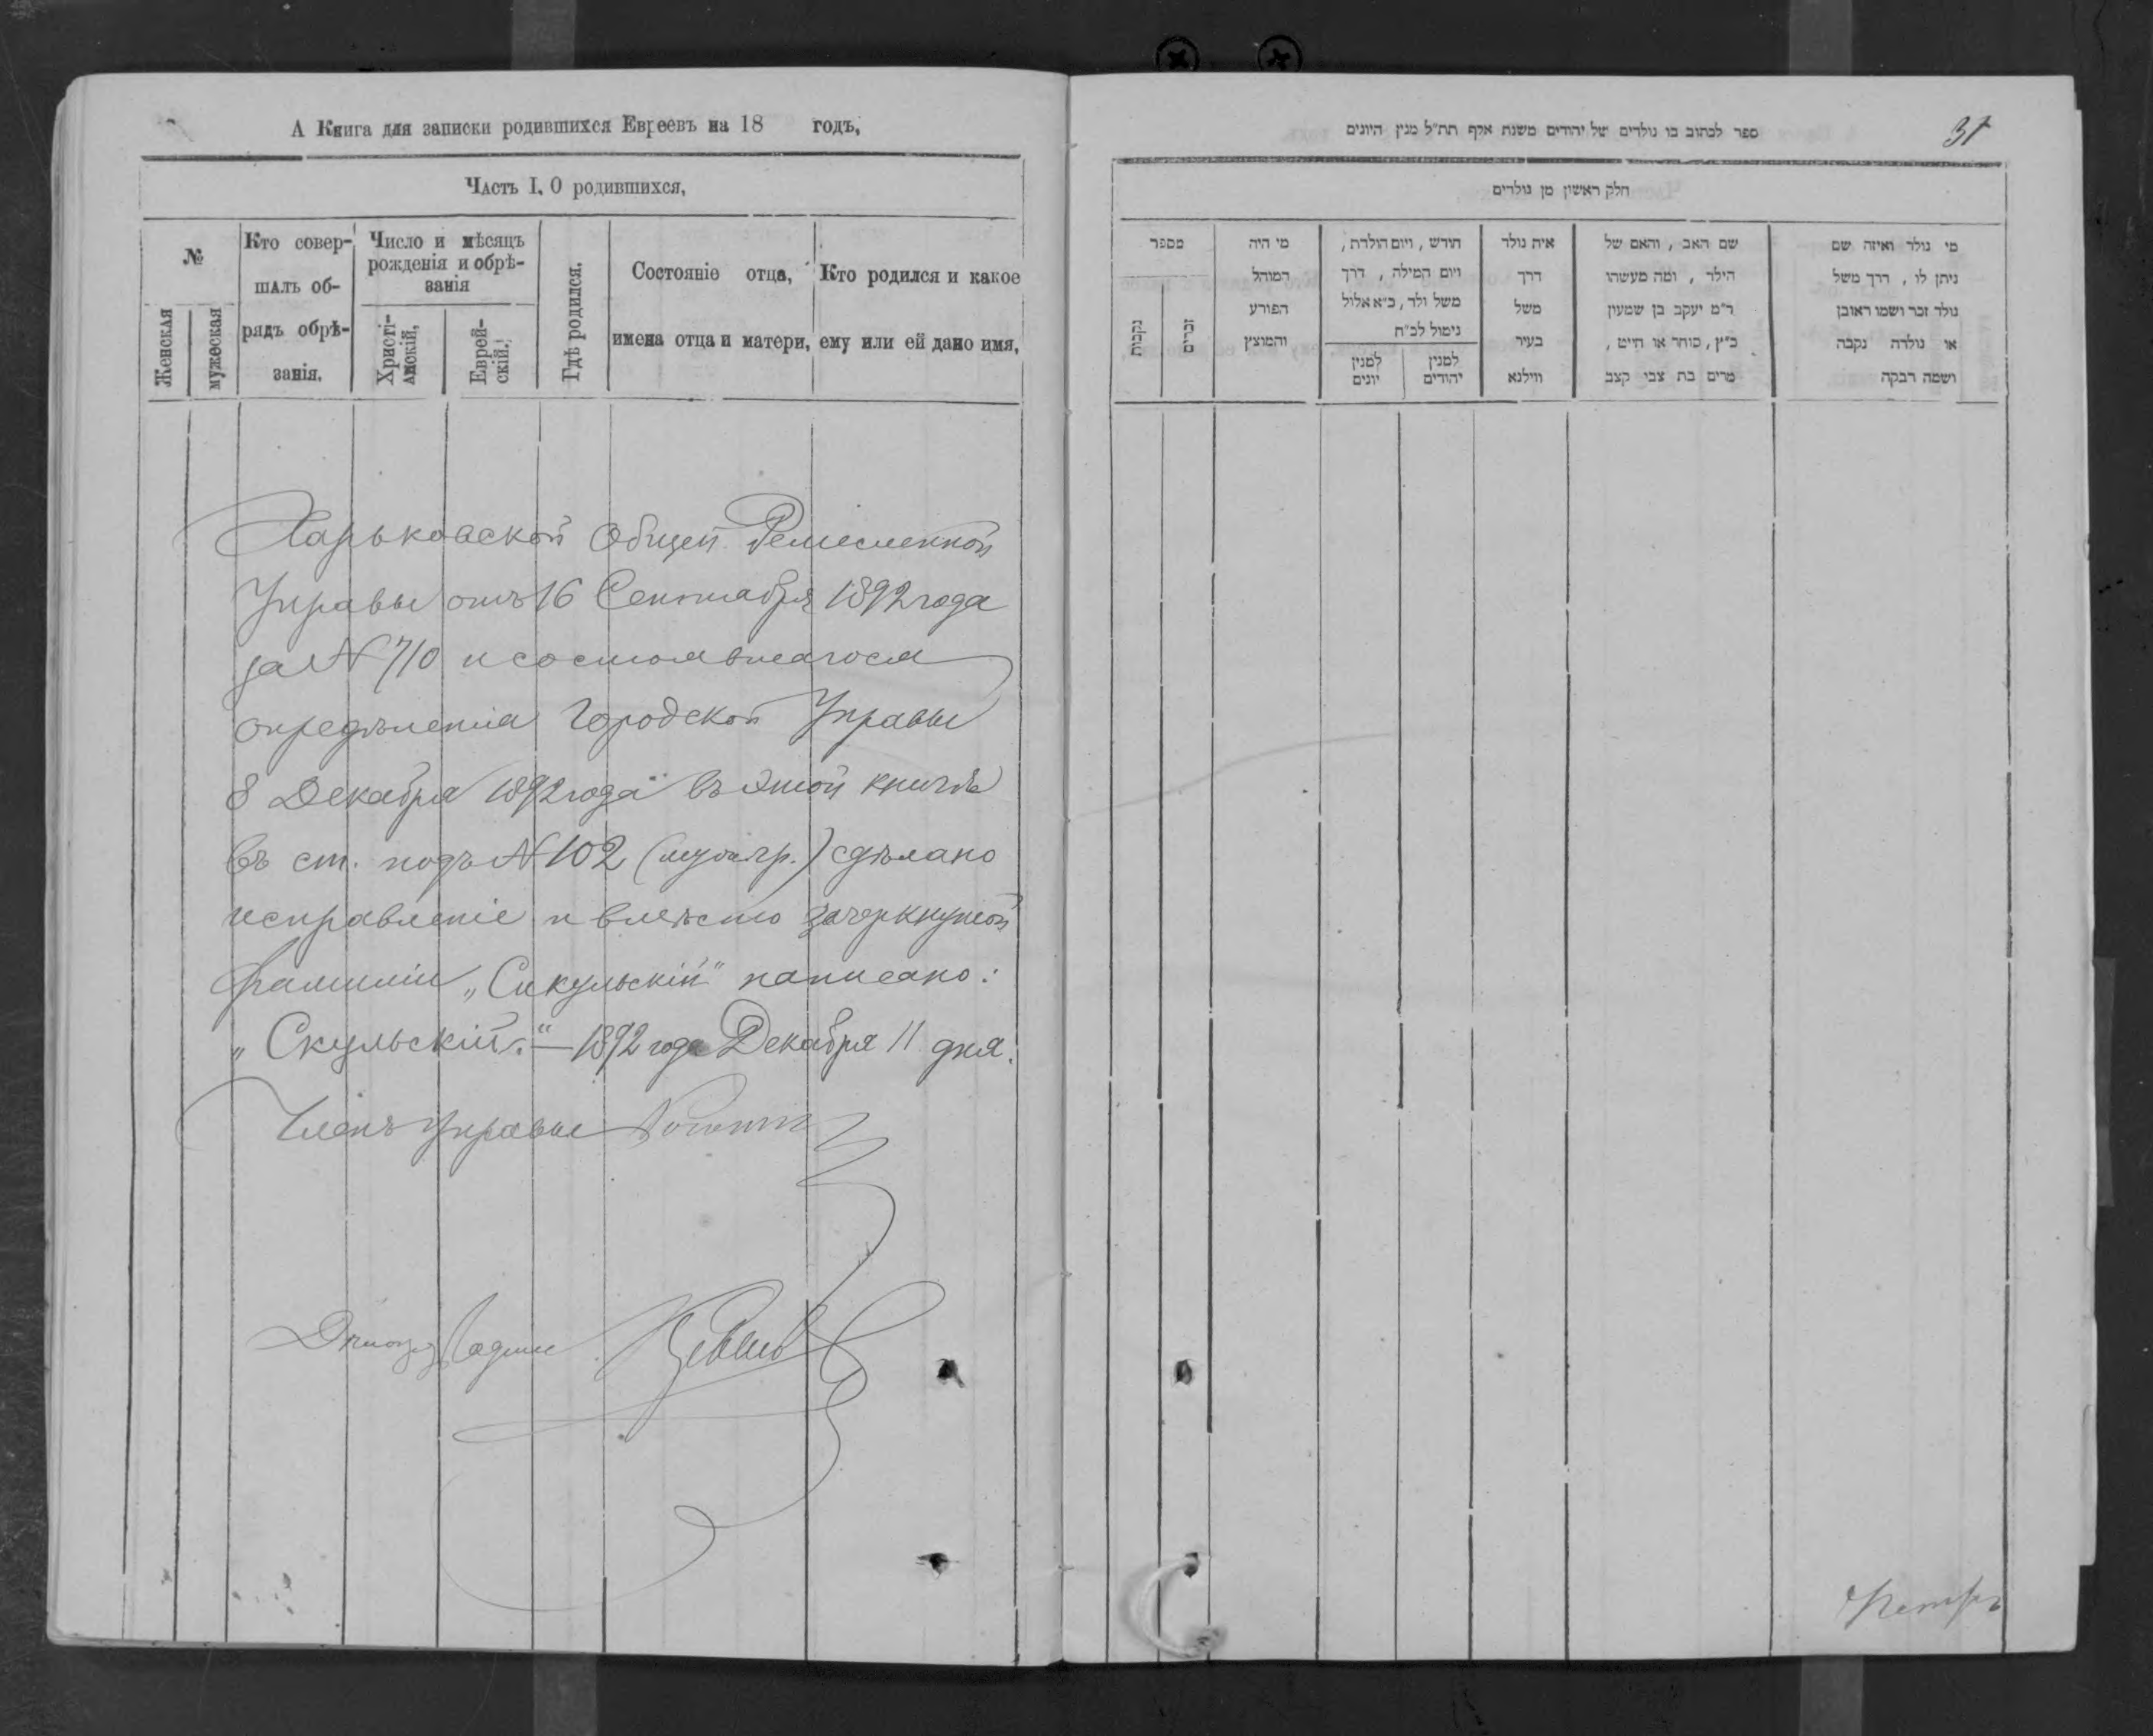 А Книга для записки родившихся Евреевъ на 18 годъ,
Часть I. О родившихся,
№
Женская
мужеская
Кто совер-
шалъ об-
рядъ обрѣ-
занія.
Число и мѣсяцъ
рожденія и обрѣ-
занія
Христі-
анскій,
Еврей-
скій.
Гдѣ родился.
Состояніе отца,
имена отца и матери,
Кто родился и какое
ему или ей дано имя,
Харьковской Общей Ремесленной
Управы отъ 16 Сентября 1892 года
за № 710 и состоявшагося
опредѣленія Городской Управы
8 Декабря 1892 года въ этой книгѣ
въ ст. подъ № 102 (муж. гр.) сдѣлано
исправленіе и вмѣсто зачеркнутой
фамиліи „Сикульскій“ написано:
„Скульскій.“ — 1892 года Декабря 11 дня.
Членъ Управы
ספר לכתוב בו נולדים של יהודים משנת אלף תת״ל מנין היונים
31
חלק ראשון מן נולדים
מספר
נקבות
זכרים
מי היה
המוהל
הפורע
והמוצץ
חודש , ויום הולדת ,
ויום המילה , דרך
משל ולד , כ״א אלול
נימול לכ״ח
למנין
יונים
למנין
יהודים
איה נולד
דרך
משל
בעיר
ווילנא
שם האב , והאם של
הילד , ומה מעשהו
ר״מ יעקב בן שמעון
כ״ץ , סוחר או חייט ,
מרים בת צבי קצב
מי נולד ואיזה שם
ניתן לו , דרך משל
נולד זכר ושמו ראובן
או נולדה נקבה
ושמה רבקה